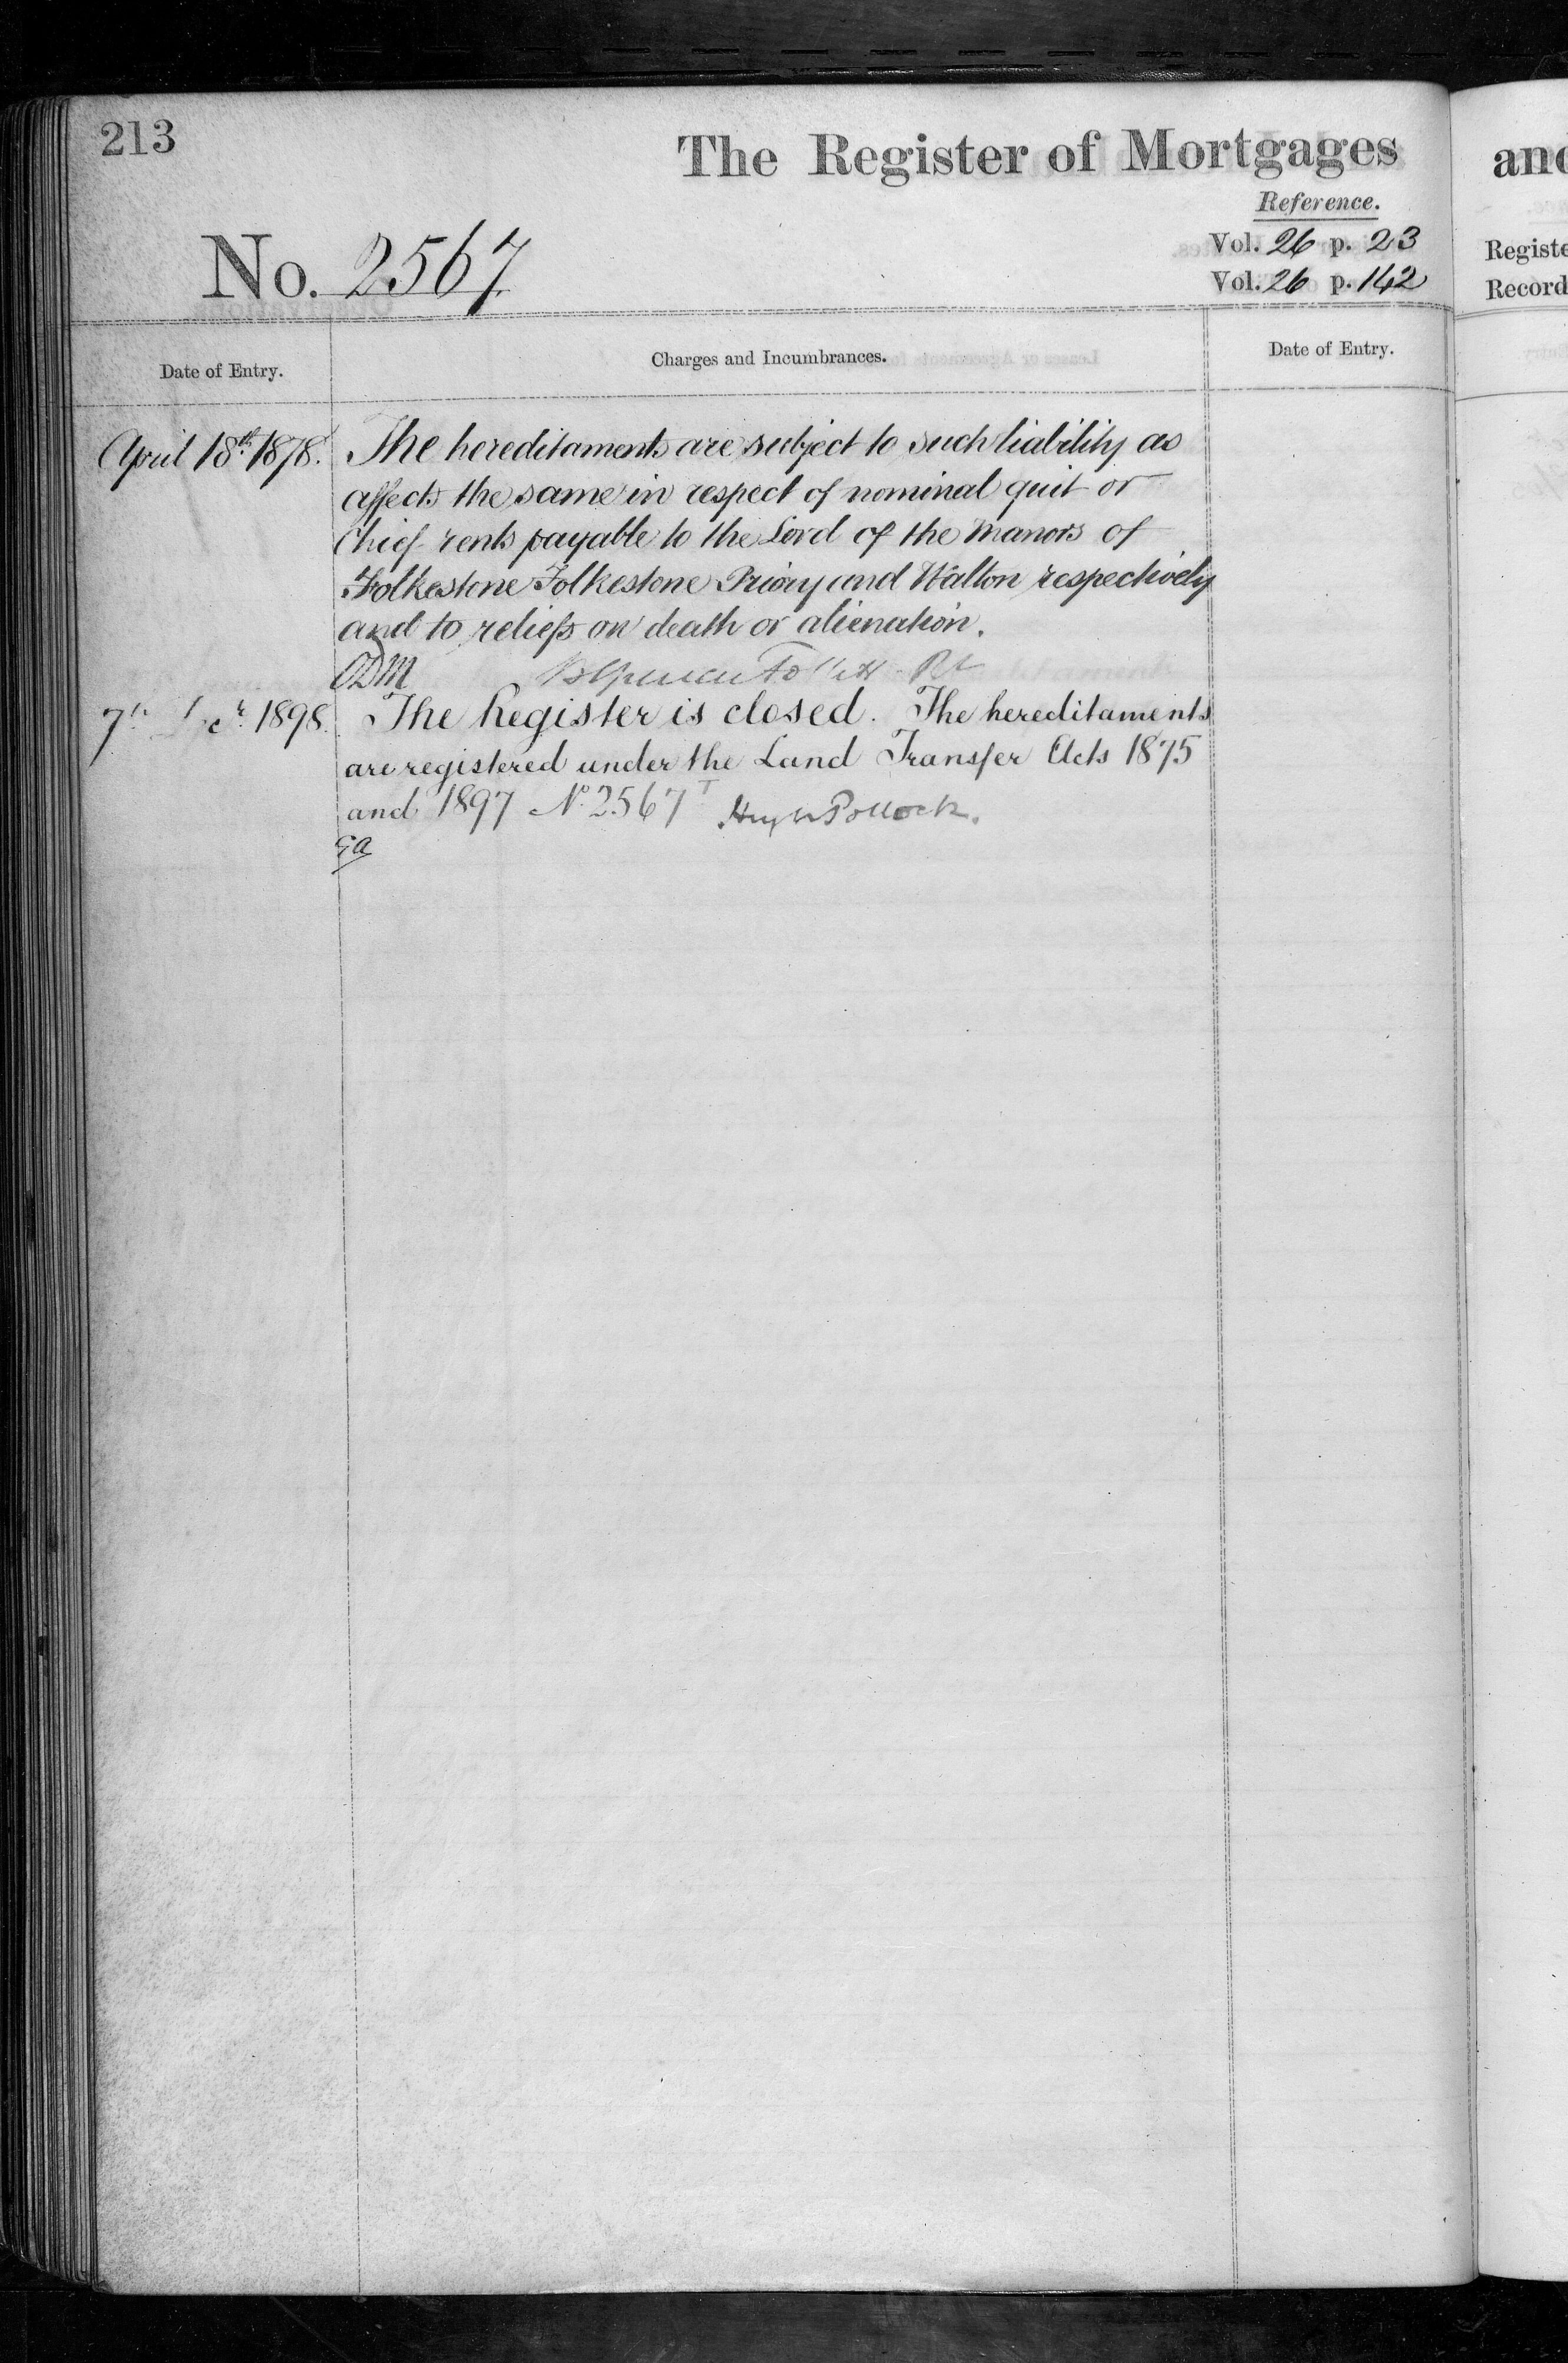 213
The Register of Mortgages
Reference.
No. 2567
Vol. 26 p. 23
Vol. 26 p. 142
Date of Entry.
Charges and Incumbrances.
Date of Entry.
April 18th 1878.
The hereditaments are subject to such liability as
affects the same in respect of nominal quit or
Chief rents payable to the Lord of the Manors of
Folkestone Folkestone Priory and Walton respectively
and to reliefs on death or alienation.
ODM
7th Decr. 1898.
The Register is closed. The hereditaments
are registered under the Land Transfer Acts 1875
and 1897 No. 2567T Hugh Pollock.
Ea
and
Registe
Record